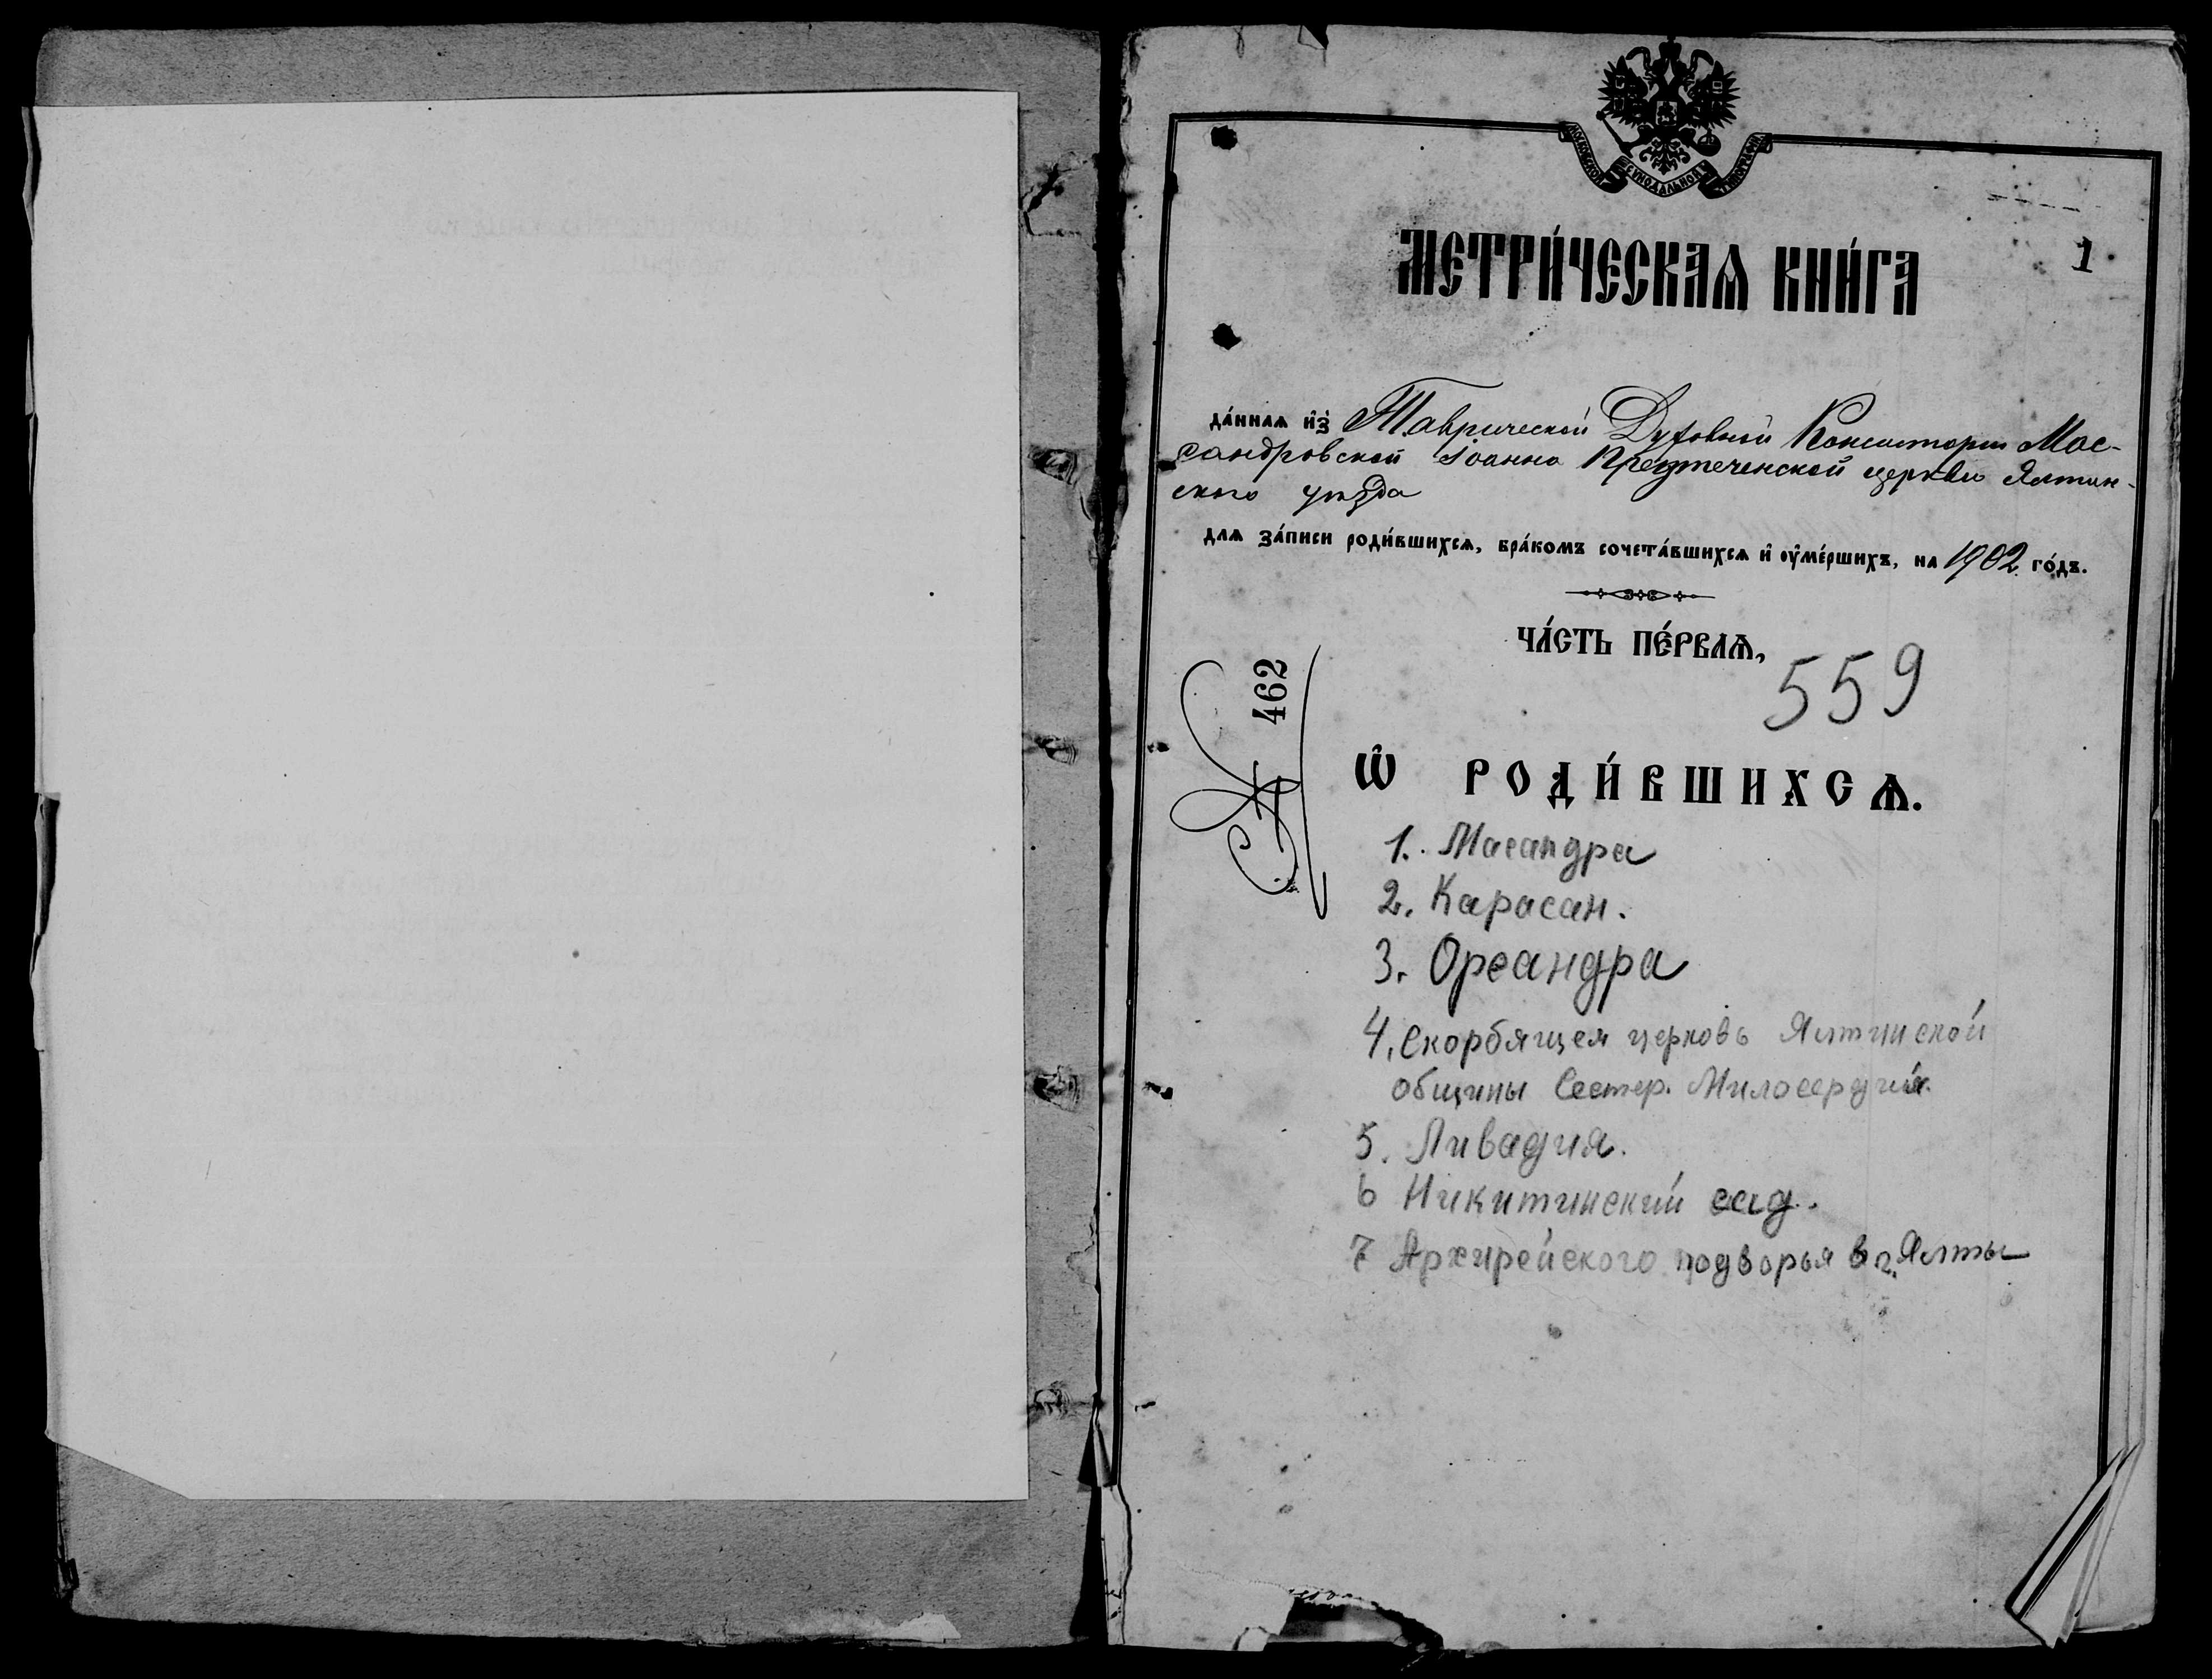 МОСКОВСКОЙ СУНОДАЛЬНОЙ ТИПОГРАФІИ
МЕТРИ́ЧЕСКАѦ КНИ́ГА
1
да́ннаѧ и҆зъ Таврической Духовной Консисторіи Мас-
сандровской Іоанно Предтеченской церкви Ялтин-
ского уѣзда
длѧ за́писи роди́вшихсѧ, бра́комъ сочета́вшихсѧ и҆ ᲂу҆ме́ршихъ, на 1902 го́дъ.
ЧА́СТЬ ПЕ́РВАѦ,
559
462
Ѽ РОДИ́ВШИХСѦ.
1. Масандра
2. Карасан.
3. Ореандра
4. Скорбящем церковь Ялтинской
общины Сестер. Милосердия.
5. Ливадия.
6 Никитинский сад.
7 Архирейского подворья в г. Ялты